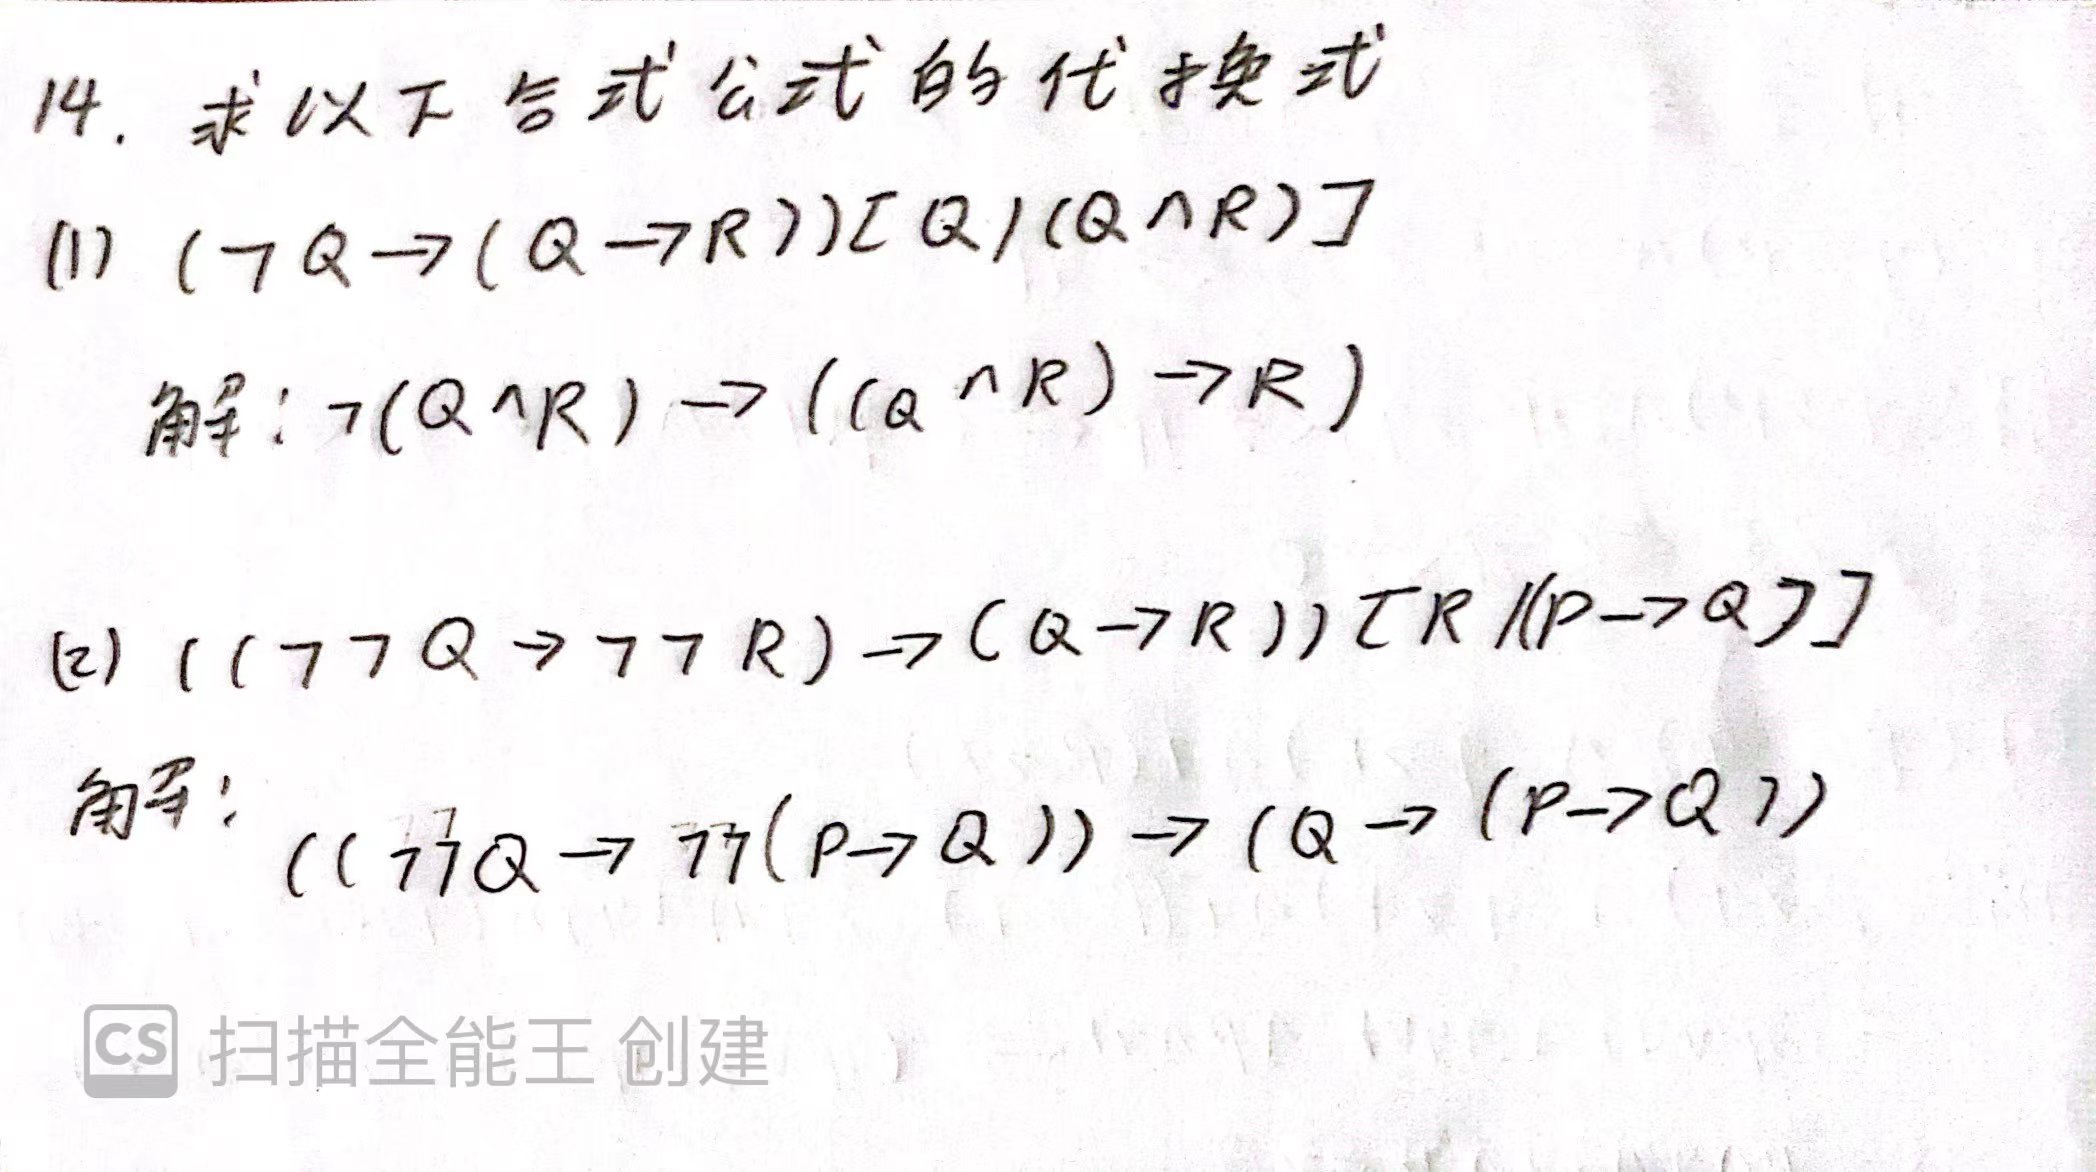 14. 求以下合式公式的代换式
(1) (¬Q→(Q→R))[Q/(Q∧R)]
解: ¬(Q∧R)→((Q∧R)→R)
(2) ((¬¬Q→¬¬R)→(Q→R))[R/(P→Q)]
解: ((¬¬Q→¬¬(P→Q))→(Q→(P→Q))
CS 扫描全能王 创建